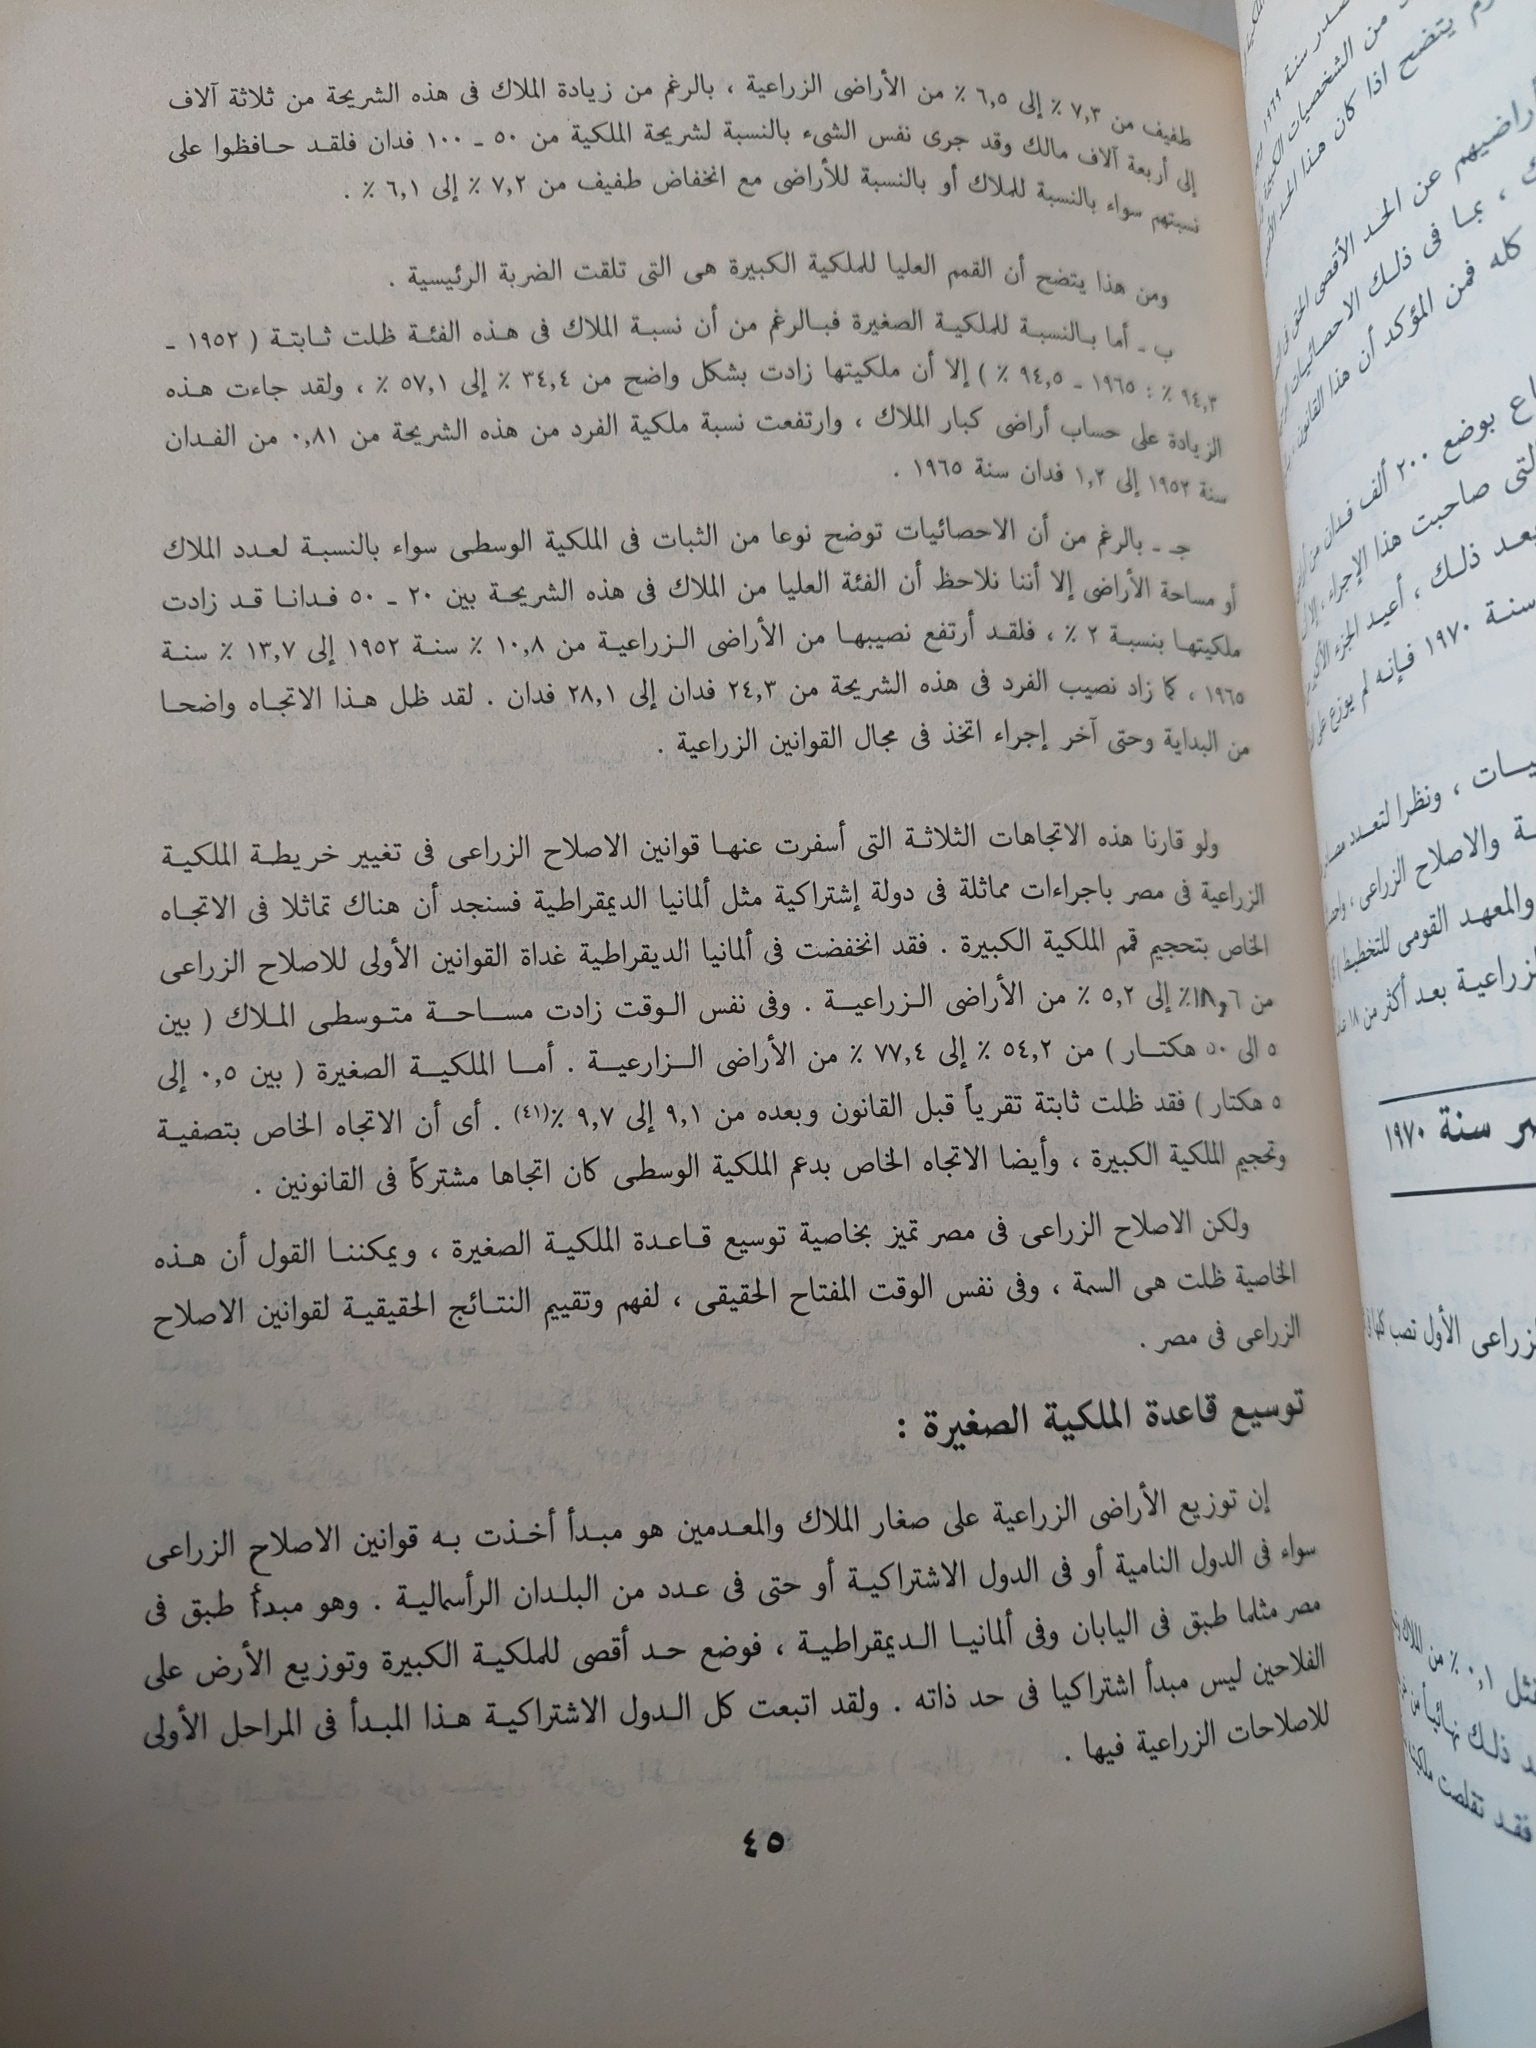 طفيف من ٧,٣ ٪ إلى ٦,٥ ٪ من الأراضى الزراعية ، بالرغم من زيادة الملاك فى هذه الشريحة من ثلاثة آلاف
إلى أربعة آلاف مالك وقد جرى نفس الشىء بالنسبة لشريحة الملكية من ٥٠ ـ ١٠٠ فدان فلقد حافظوا على
نسبتهم سواء بالنسبة للملاك أو بالنسبة للأراضى مع انخفاض طفيف من ٧,٢ ٪ إلى ٦,١ ٪ .
ومن هذا يتضح أن القمم العليا للملكية الكبيرة هى التى تلقت الضربة الرئيسية .
ب ـ أما بالنسبة للملكية الصغيرة فبالرغم من أن نسبة الملاك فى هذه الفئة ظلت ثابتة ( ١٩٥٢ ـ
٩٤,٣ ٪ : ١٩٦٥ ـ ٩٤,٥ ٪ ) إلا أن ملكيتها زادت بشكل واضح من ٣٤,٤ ٪ إلى ٥٧,١ ٪ ، ولقد جاءت هذه
الزيادة على حساب أراضى كبار الملاك ، وارتفعت نسبة ملكية الفرد من هذه الشريحة من ٠,٨١ من الفدان
سنة ١٩٥٢ إلى ١,٢ فدان سنة ١٩٦٥ .
جـ ـ بالرغم من أن الاحصائيات توضح نوعا من الثبات فى الملكية الوسطى سواء بالنسبة لعدد الملاك
أو مساحة الأراضى إلا أننا نلاحظ أن الفئة العليا من الملاك فى هذه الشريحة بين ٢٠ ـ ٥٠ فدانا قد زادت
ملكيتها بنسبة ٢ ٪ ، فلقد أرتفع نصيبها من الأراضى الزراعية من ١٠,٨ ٪ سنة ١٩٥٢ إلى ١٣,٧ ٪ سنة
١٩٦٥ ، كما زاد نصيب الفرد فى هذه الشريحة من ٢٤,٣ فدان إلى ٢٨,١ فدان . لقد ظل هذا الاتجاه واضحا
من البداية وحتى آخر إجراء اتخذ فى مجال القوانين الزراعية .
ولو قارنا هذه الاتجاهات الثلاثة التى أسفرت عنها قوانين الاصلاح الزراعى فى تغيير خريطة الملكية
الزراعية فى مصر باجراءات مماثلة فى دولة إشتراكية مثل ألمانيا الديمقراطية فسنجد أن هناك تماثلا فى الاتجاه
الخاص بتحجيم قمم الملكية الكبيرة . فقد انخفضت فى ألمانيا الديقراطية غداة القوانين الأولى للاصلاح الزراعى
من ١٨,٦٪ إلى ٥,٢ ٪ من الأراضى الزراعية . وفى نفس الوقت زادت مساحة متوسطى الملاك ( بين
٥ الى ٥٠ هكتار ) من ٥٤,٢ ٪ إلى ٧٧,٤ ٪ من الأراضى الزارعية . أما الملكية الصغيرة ( بين ٠,٥ إلى
٥ هكتار ) فقد ظلت ثابتة تقرياً قبل القانون وبعده من ٩,١ إلى ٩,٧ ٪(٤١) . أى أن الاتجاه الخاص بتصفية
وتحجيم الملكية الكبيرة ، وأيضا الاتجاه الخاص بدعم الملكية الوسطى كان اتجاها مشتركاً فى القانونين .
ولكن الاصلاح الزراعى فى مصر تميز بخاصية توسيع قاعدة الملكية الصغيرة ، ويمكننا القول أن هذه
الخاصية ظلت هى السمة ، وفى نفس الوقت المفتاح الحقيقى ، لفهم وتقييم النتائج الحقيقية لقوانين الاصلاح
الزراعى فى مصر .
توسيع قاعدة الملكية الصغيرة :
إن توزيع الأراضى الزراعية على صغار الملاك والمعدمين هو مبدأ أخذت به قوانين الاصلاح الزراعى
سواء فى الدول النامية أو فى الدول الاشتراكية أو حتى فى عدد من البلدان الرأسمالية . وهو مبدأ طبق فى
مصر مثلما طبق فى اليابان وفى ألمانيا الديمقراطية ، فوضع حد أقصى للملكية الكبيرة وتوزيع الأرض على
الفلاحين ليس مبدأ اشتراكيا فى حد ذاته . ولقد اتبعت كل الدول الاشتراكية هذا المبدأ فى المراحل الأولى
للاصلاحات الزراعية فيها .
٤٥
صدر سنة ١٩٦٩
من الشخصيات
يتضح اذا كان هذا الحد
أراضيهم عن الحد الأقصى
، بما فى ذلك الاحصائيات
كله فمن المؤكد أن هذا القانون
بوضع ٢٠٠ ألف فدان من
التى صاحبت هذا الإجراء ،
بعد ذلك ، أعيد الجزء
سنة ١٩٧٠ فإنه لم يوزع على
، ونظرا لتعدد
والاصلاح الزراعى ،
والمعهد القومى للتخطيط
الزراعية بعد أكثر من ١٨
سنة ١٩٧٠
الزراعى الأول
٠,١ ٪ من الملاك
ذلك نهائياً من
فقد تقلصت